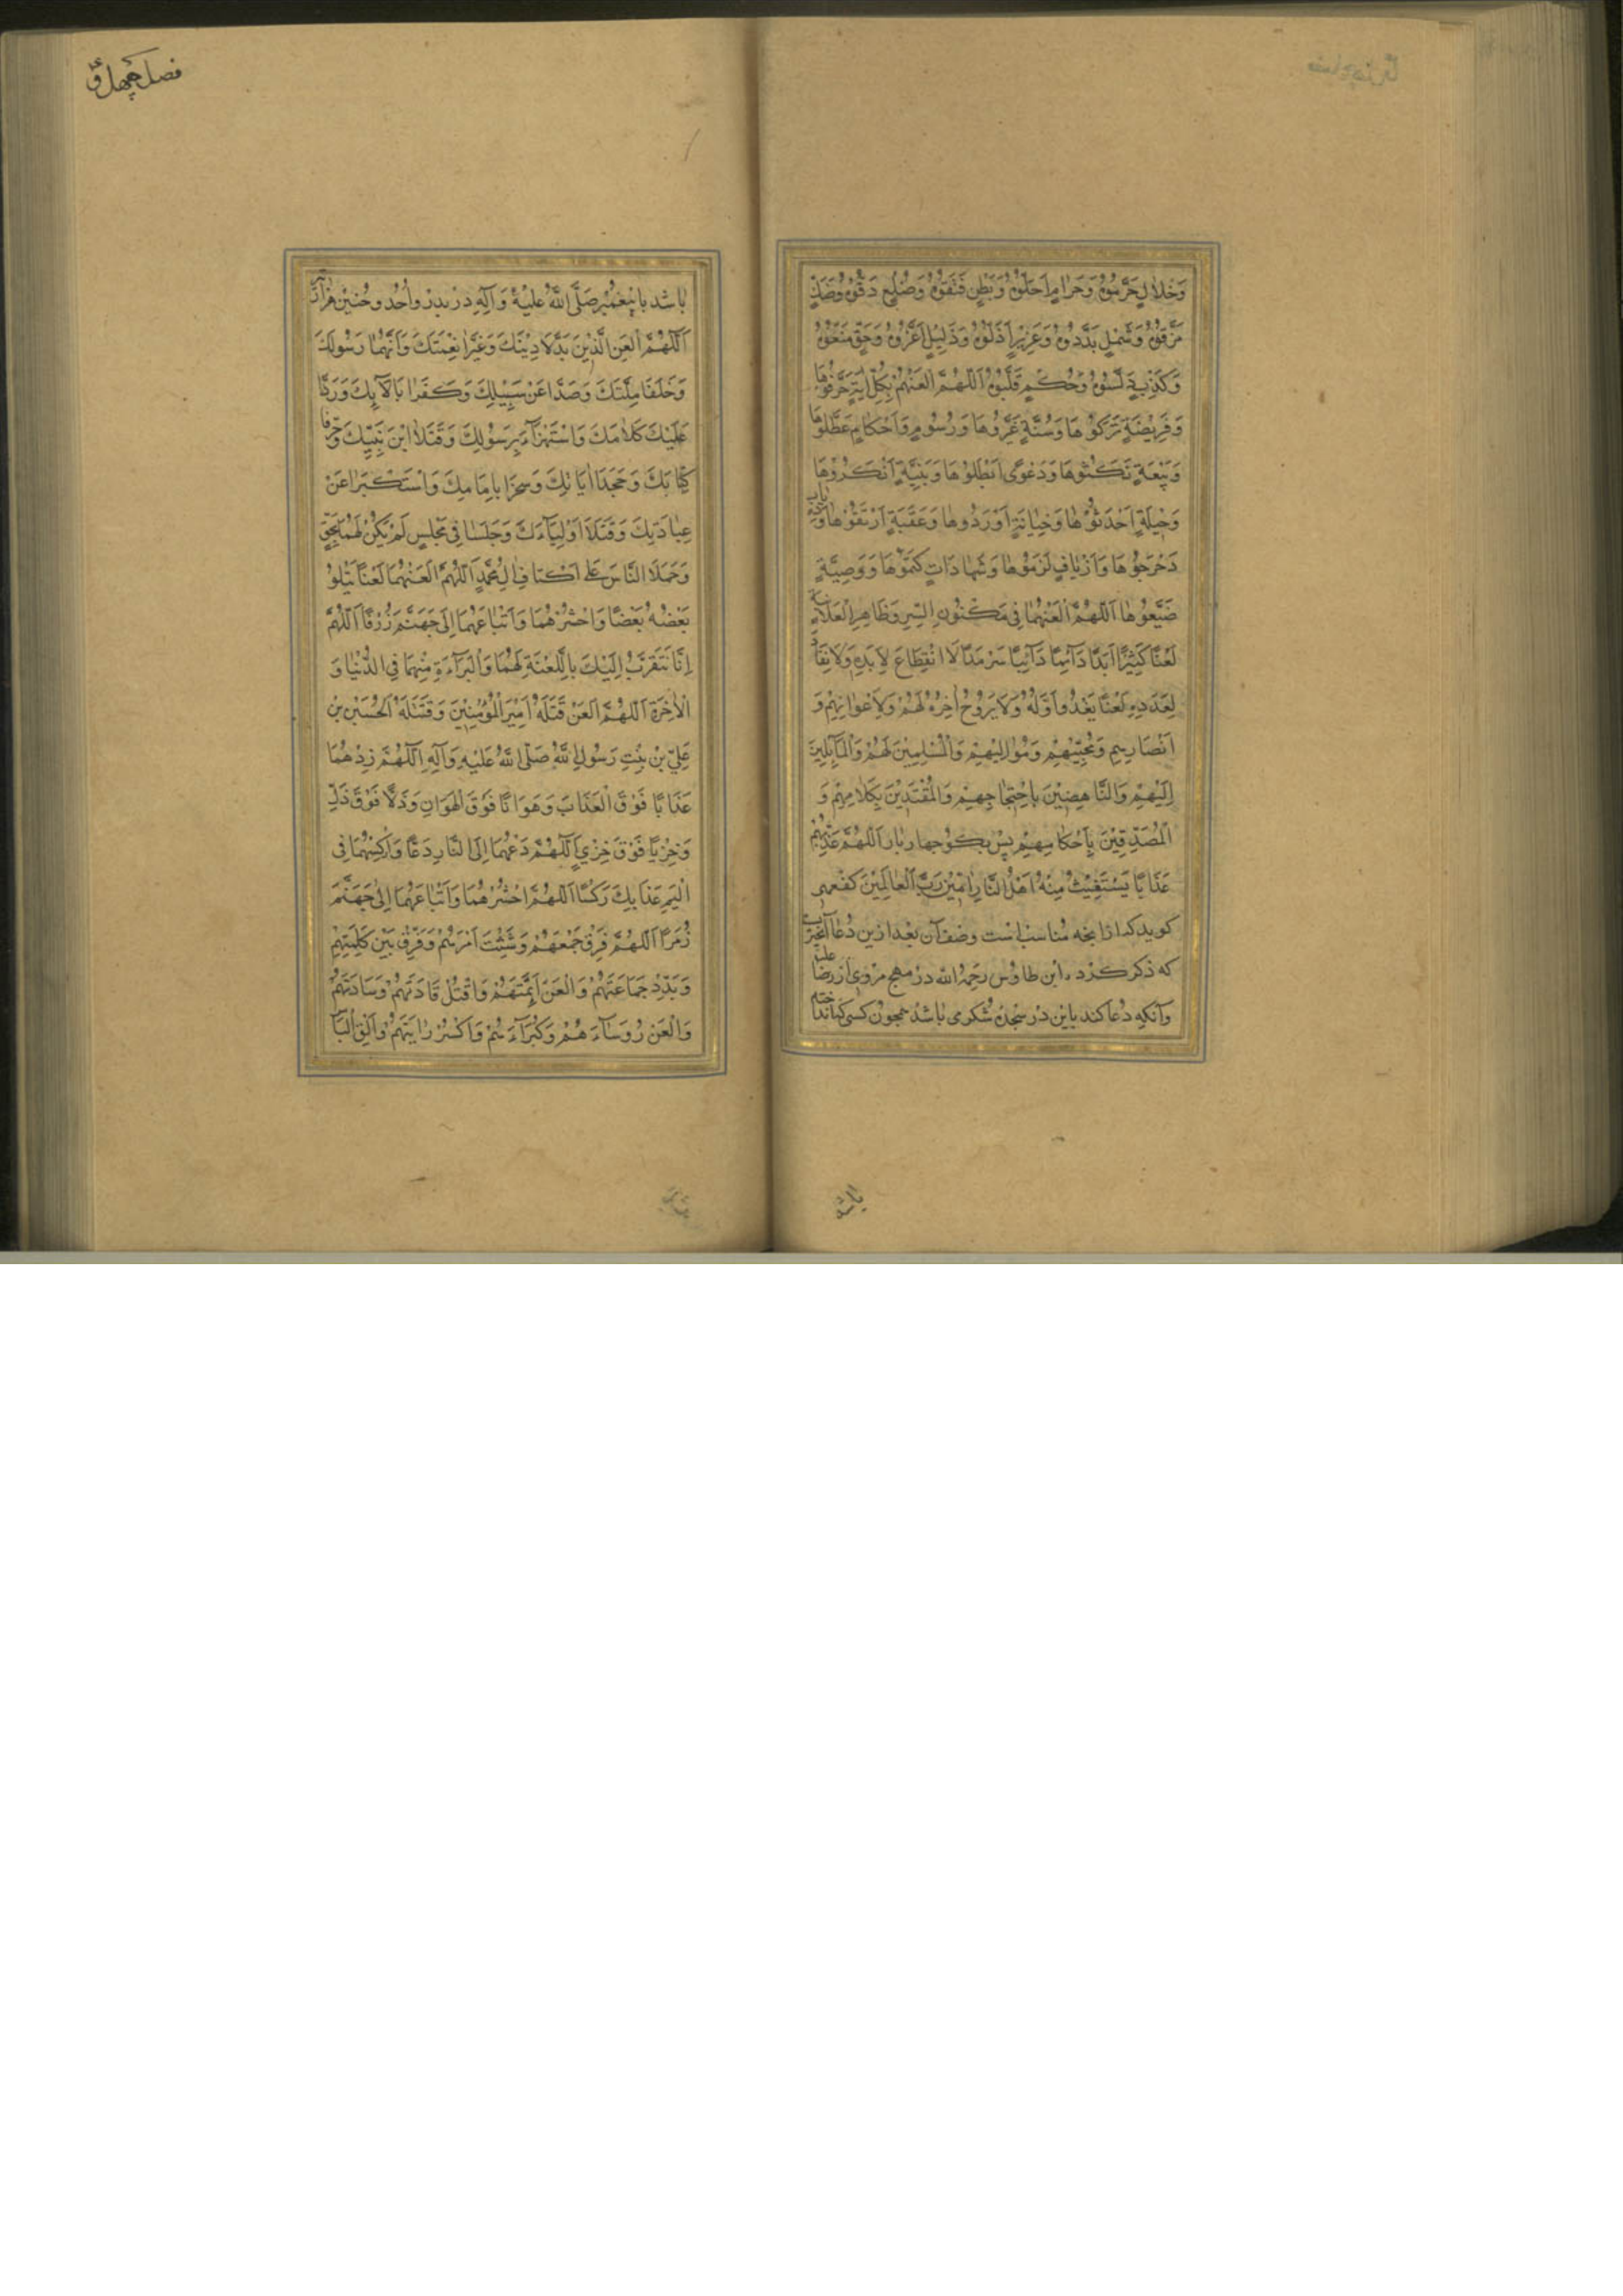 وَحَلالٍ حَرَّمُوهُ وَحَرامٍ اَحَلُّوهُ وَبَطْنٍ فَتَقُوهُ وَضِلْعٍ دَقُّوهُ وَصَكٍّ
مَزَّقُوهُ وَشَمْلٍ بَدَّدُوهُ وَعَزِيزٍ اَذَلُّوهُ وَذَلِيلٍ اَعَزُّوهُ وَحَقٍّ مَنَعُوهُ
وَكَذِبٍ دَلَّسُوهُ وَحُكْمٍ قَلَّبُوهُ اَللّهُمَّ الْعَنْهُمْ بِكُلِّ ايَةٍ حَرَّفُوها
وَفَرِيضَةٍ تَرَكُوها وَسُنَّةٍ غَيَّرُوها وَرُسُومٍ وَاَحْكامٍ عَطَّلُوها
وَبَيْعَةٍ نَكَثُوها وَدَعْوًى اَبْطَلُوها وَبَيِّنَةٍ اَنْكَرُوها
وَحِيلَةٍ اَحْدَثُوها وَخِيانَةٍ اَوْرَدُوها وَعَقَبَةٍ ارْتَقَوْها وَدِبابٍ
دَحْرَجُوها وَاَزْيافٍ لَزِمُوها وَشَهاداتٍ كَتَمُوها وَوَصِيَّةٍ
ضَيَّعُوها اَللّهُمَّ الْعَنْهُما فِى مَكْنُونِ السِّرِ وَظاهِرِ الْعَلانِيَةِ
لَعْنًا كَثِيرًا اَبَدًا دَآئِمًا دَآئِبًا سَرْمَدًا لَا انْقِطاعَ لِاَبَدِهِ وَلا نَفادَ
لِعَدَدِهِ لَعْنًا يَغْدُوا اَوَّلُهُ وَلا يَرُوحُ اخِرُهُ لَهُمْ وَلِاَعْوانِهِمْ وَ
اَنْصارِهِمْ وَمُحِبِّيهِمْ وَمَوالِيهِمْ وَالْمُسْلِمِينَ لَهُمْ وَالْمَآئِلِينَ
اِلَيْهِمْ وَالنّاهِضِينَ بِاحْتِجاجِهِمْ وَالْمُقْتَدِينَ بِكَلامِهِمْ وَ
الْمُصَدِّقِينَ بِاَحْكامِهِمْ پس بگو چهار بار اَللّهُمَّ عَذِّبْهُمْ
عَذابًا يَسْتَغِيثُ مِنْهُ اَهْلُ النّارِ امِينَ رَبَّ الْعالَمِينَ كفعمى
گويد كه از آنچه مناسب است وضع آن بعد ازين دعا آنچيز يست
كه ذكر كرده ابن طاوس رحمه الله در مهج مروى از رضا عليه
وآنكه دعا كند باين در سجده شكر مى باشد همچون كسى كه انداخته
باشد
باشد با پيغمبر صَلَّى اللّهُ عَلَيْهِ وَآلِهِ در بدر واُحُد وحُنين هزار تير
اَللّهُمَّ الْعَنِ الَّذَيْنِ بَدَّلا دِينَكَ وَغَيَّرا نِعْمَتَكَ وَاتَّهَما رَسُولَكَ
وَخالَفا مِلَّتَكَ وَصَدّا عَنْ سَبِيلِكَ وَكَفَرا بِالآئِكَ وَرَدّا
عَلَيْكَ كَلامَكَ وَاسْتَهْزَآءَ بِرَسُولِكَ وَقَتَلَا ابْنَ نَبِيِّكَ وَحَرَّفا
كِتابَكَ وَجَحَدا اياتِكَ وَسَخِرا بِاِمامِكَ وَاسْتَكْبَرا عَنْ
عِبادَتِكَ وَقَتَلا اَوْلِيآءَكَ وَجَلَسا فِى مَجْلِسٍ لَمْ يَكُنْ لَهُما بِحَقٍّ
وَحَمَلَا النّاسَ عَلى اَكْتافِ الِ مُحَمَّدٍ اَللّهُمَّ الْعَنْهُما لَعْنًا يَتْلُوا
بَعْضُهُ بَعْضًا وَاحْشُرْهُما وَاَتْباعَهُما اِلى جَهَنَّمَ زُرْقًا اَللّهُمَّ
اِنّا نَتَقَرَّبُ اِلَيْكَ بِاللَّعْنَةِ لَهُما وَالْبَرآءَةِ مِنْهُما فِى الدُّنْيا وَ
الْاخِرَةِ اَللّهُمَّ الْعَنْ قَتَلَةَ اَمِيرِ الْمُؤْمِنِينَ وَقَتَلَةَ الْحُسَيْنِ بْنِ
عَلِيِّ بْنِ بِنْتِ رَسُولِ اللّهِ صَلَّى اللّهُ عَلَيْهِ وَآلِهِ اَللّهُمَّ زِدْهُما
عَذابًا فَوْقَ الْعَذابِ وَهَوانًا فَوْقَ الْهَوانِ وَذُلًّا فَوْقَ ذُلٍّ
وَخِزْيًا فَوْقَ خِزْيٍ اَللّهُمَّ دُعَّهُما اِلَى النّارِ دَعًّا وَارْكُسْهُما فِى
اَلِيمِ عَذابِكَ رَكْسًا اَللّهُمَّ احْشُرْهُما وَاَتْباعَهُما اِلى جَهَنَّمَ
زُمَرًا اَللّهُمَّ فَرِّقْ جَمْعَهُمْ وَشَتِّتْ اَمْرَهُمْ وَفَرِّقْ بَيْنَ كَلِمَتِهِمْ
وَبَدِّدْ جَماعَتَهُمْ وَالْعَنْ اَئِمَّتَهُمْ وَاقْتُلْ قادَتَهُمْ وَسادَتَهُمْ
وَالْعَنْ رُؤَسآءَهُمْ وَكُبَرآءَهُمْ وَاكْسُرْ رايَتَهُمْ وَاَلْقِ الْبَأْ
فصل چهل